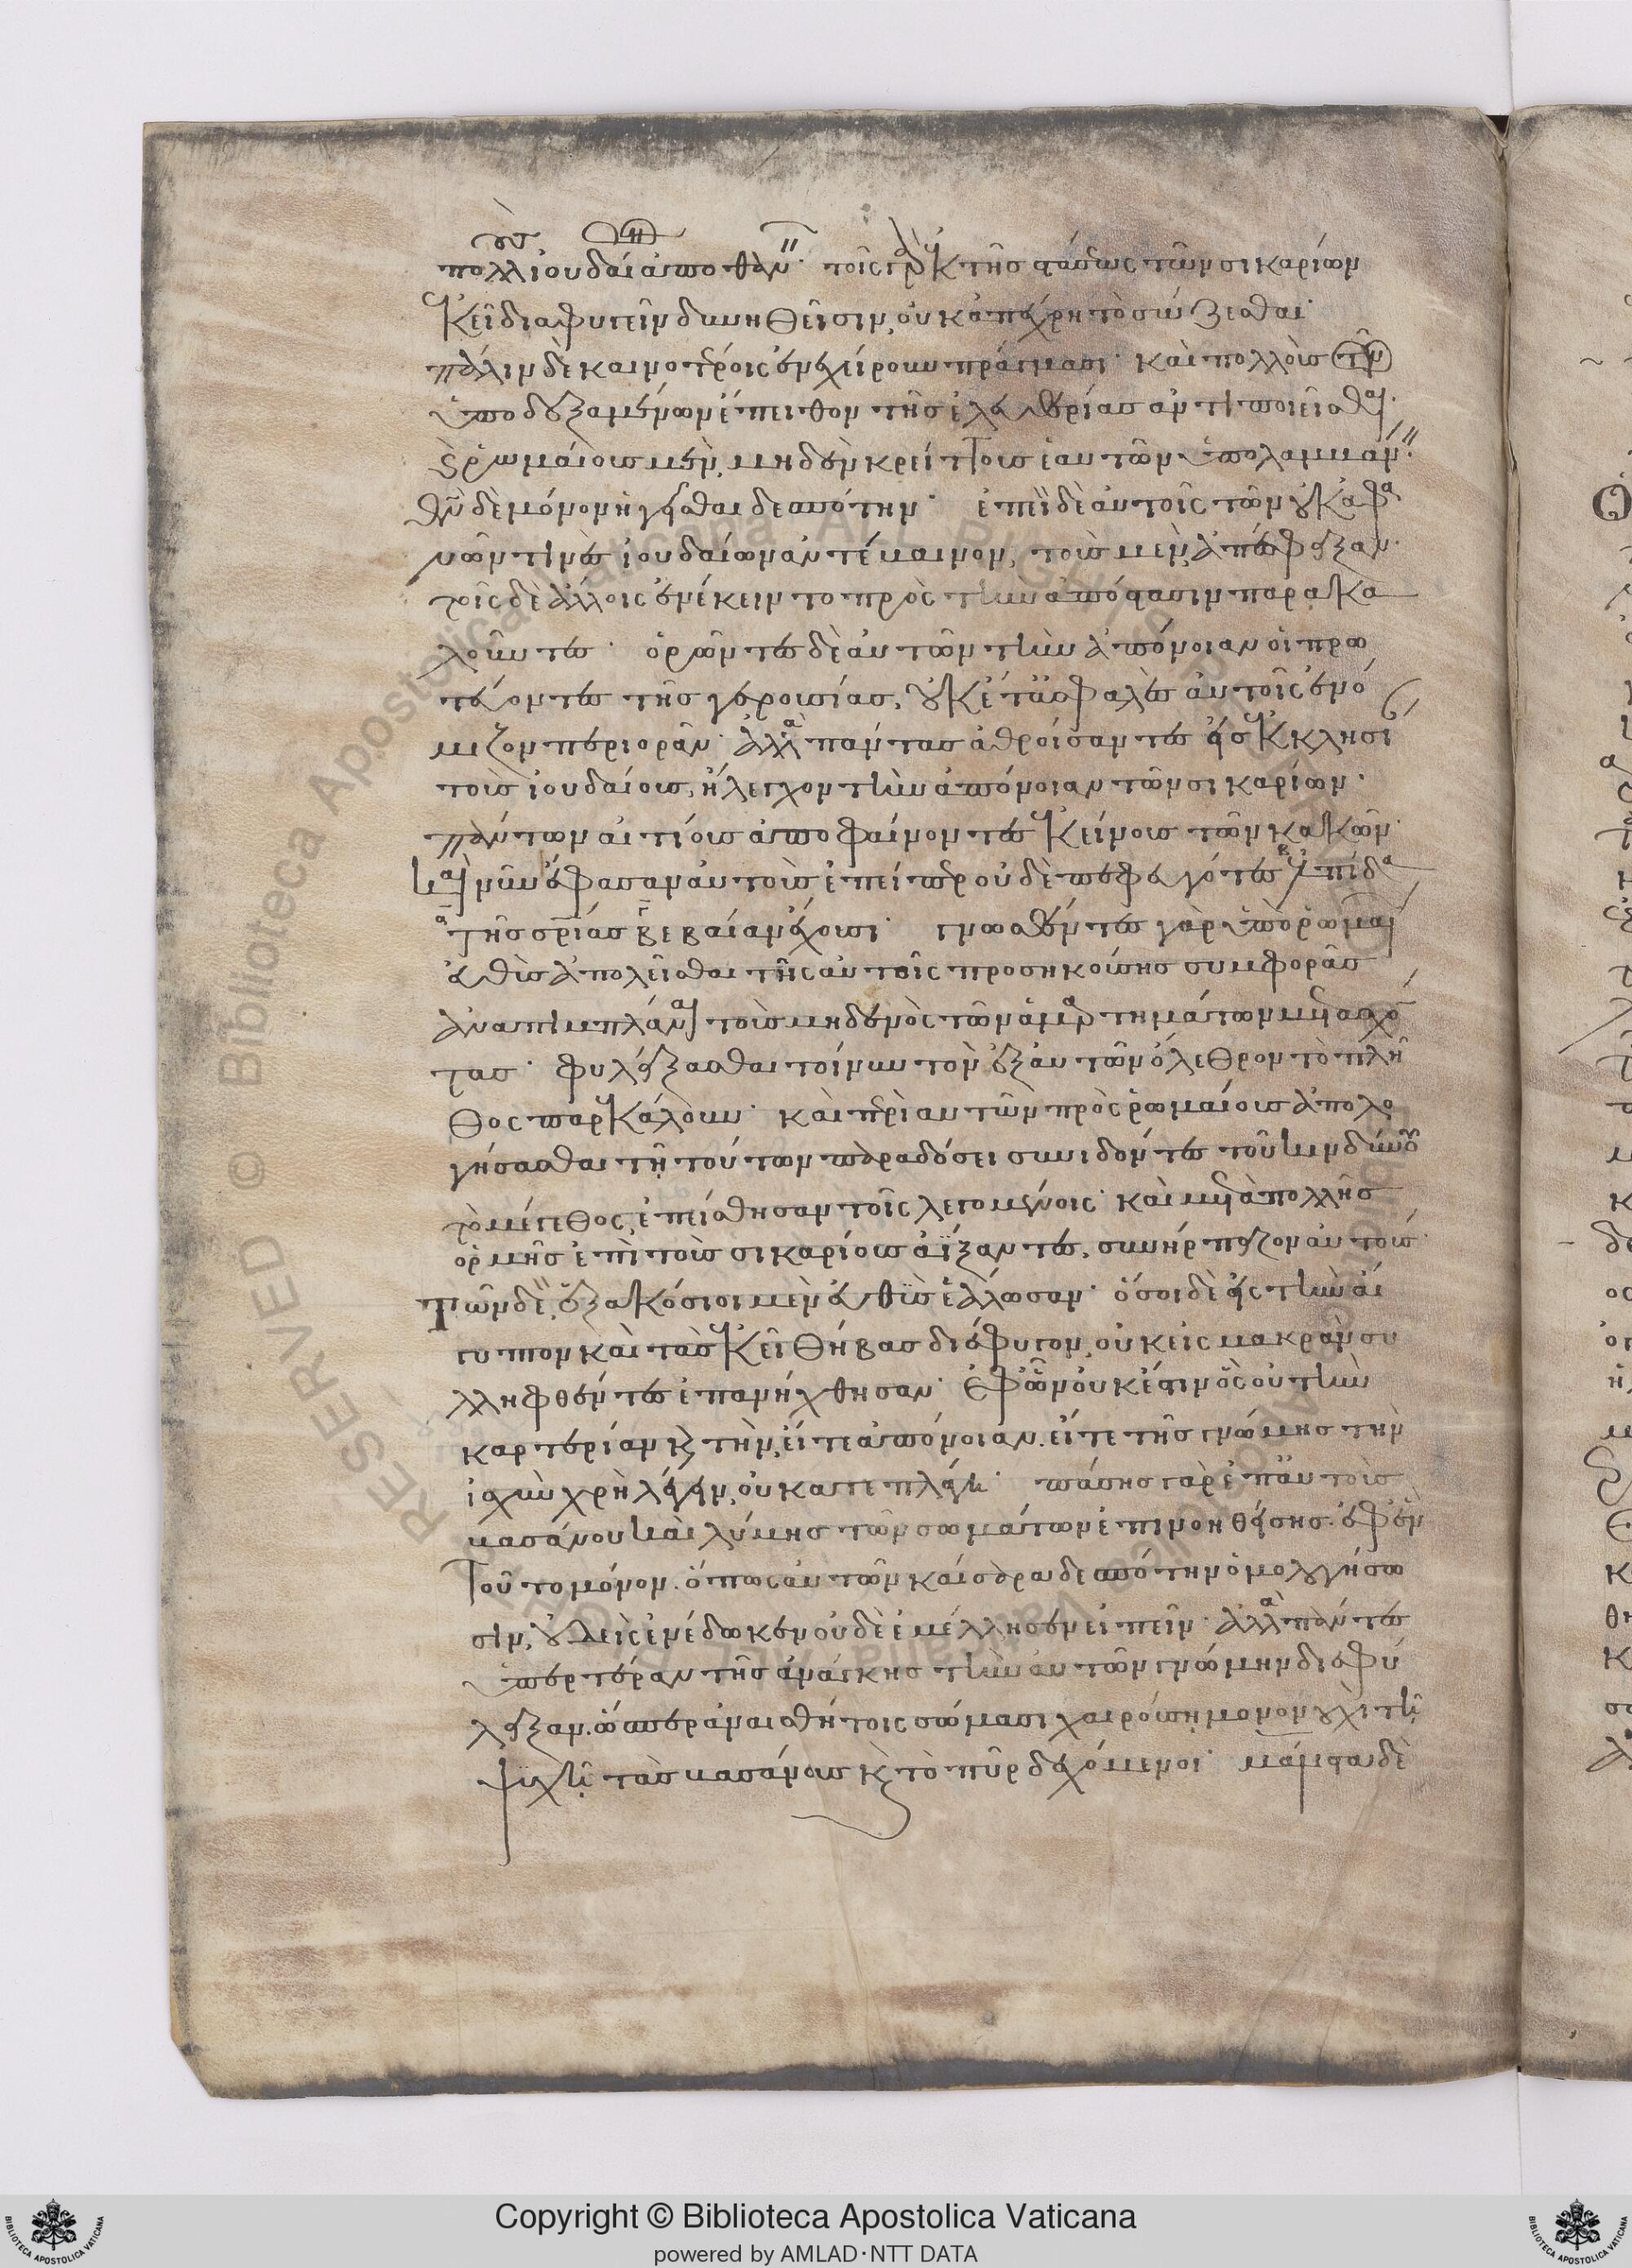 πολλοὺς ἰουδαίων ἀποθανεῖν· τοῖς γὰρ ἐκ τῆς στάσεως τῶν σικαρίων
ἐκεῖ διαφυγεῖν δυνηθεῖσιν, οὐκ ἀπέχρη τὸ σώζεσθαι·
πάλιν δὲ καινοτέροις ἐνεχείρουν πράγμασι· καὶ πολλοὺς τῶν
ὑποδεξαμένων ἔπειθον τῆς ἐλευθερίας ἀντιποιεῖσθαι·
καὶ ῥωμαίους μὲν, μηδὲν κρείττους ἑαυτῶν ὑπολαμβάνειν·
θν̅ δὲ μόνον ἡγεῖσθαι δεσπότην· ἐπεὶ δὲ αὐτοῖς τῶν οὐκ ἀφα
νῶν τινὲς ἰουδαίων ἀντέβαινον, τοὺς μὲν, ἀπέσφαξαν·
τοῖς δὲ ἄλλοις ἐνέκειντο πρὸς τὴν ἀπόστασιν παρακα
λοῦντες· ὁρῶντες δὲ αὐτῶν τὴν ἀπόνοιαν οἱ πρω
τεύοντες τῆς γερουσίας, οὐκέτ' ἀσφαλὲς αὐτοῖς ἐνό
μιζον περιορᾶν· ἀλλὰ πάντας ἀθροίσαντες εἰς ἐκκλησίαν
τοὺς ἰουδαίους, ἤλεγχον τὴν ἀπόνοιαν τῶν σικαρίων·
πάντων αἰτίους ἀποφαίνοντες ἐκείνους τῶν κακῶν·
καὶ νῦν ἔφασαν αὐτοὺς ἐπείπερ οὐδὲ πεφευγότες ἐλπίδα
τῆς σρ̅ίας βεβαίαν ἔχουσι· γνωσθέντες γὰρ ὑπὸ ῥωμαίων
εὐθὺς ἀπολεῖσθαι τῆς αὐτοῖς προσηκούσης συμφορᾶς
ἀναπιμπλάναι τοὺς μηδενὸς τῶν ἁμαρτημάτων μετασχόν
τας· φυλάξασθαι τοίνυν τὸν ἐξ αὐτῶν ὄλεθρον τὸ πλῆ
θος παρεκάλουν· καὶ περὶ αυτῶν πρὸς ῥωμαίους ἀπολο
γήσασθαι τῇ τούτων παραδόσει συνιδόντες τοῦ κινδύνου
τὸ μέγεθος, ἐπείσθησαν τοῖς λεγομένοις· καὶ μετὰ πολλῆς
ὁρμῆς ἐπὶ τοὺς σικαρίους ἀΐξαντες, συνήρπαζον αὐτούς·
Τῶν δὲ, ἑξακόσιοι μὲν εὐθὺς ἑάλωσαν· ὅσοι δὲ εἰς τὴν αἴ
γυπτον καὶ τὰς ἐκεῖ Θήβας διέφυγον, οὐκ εἰς μακρὰν συ
λληφθέντες ἐπανήχθησαν· ἐφ' ὧν οὐκ ἔστιν ὃς οὐ τὴν
καρτερίαν καὶ τὴν, εἴτε ἀπόνοιαν. εἴτε τῆς γνώμης τὴν
ἰσχὺν χρὴ λέγειν, οὐ κατεπλάγη· πάσης γὰρ ἐπ' αὐτοὺς
βασάνου καὶ λύμης τῶν σωμάτων ἐπινοηθείσης. ἐφ' ἓν
Τοῦτο μόνον. ὅπως αὐτῶν καίσαρα δεσπότην ὁμολογήσω
σιν, οὐδεὶς ἐνέδωκεν οὐδὲ ἐμέλλησεν εἰπεῖν· ἀλλὰ πάντες
ὑπερτέραν τῆς ἀνάγκης τὴν αυτῶν γνώμην διεφύ
λαξαν. ὥσπερ ἀναισθήτοις σώμασι χαιρούσῃ μόνον οὐχὶ τῇ
ψυχῇ τὰς βασάνους καὶ τὸ πῦρ δεχόμενοι· μάλιστα δὲ